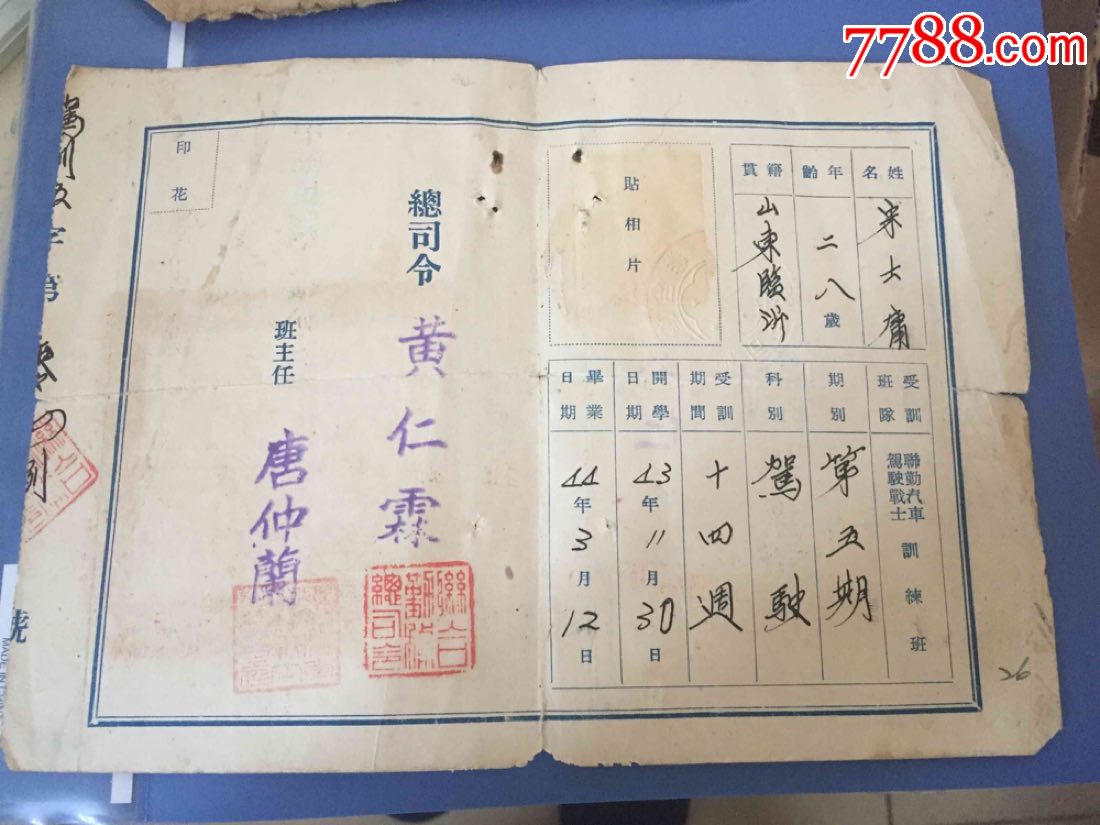 7788.com
姓名
宋士庸
年齡
二八歲
籍貫
山東臨沂
貼相片
受訓班隊
聯勤汽車駕駛戰士訓練班
期別
第五期
科別
駕駛
受訓期間
十四週
開學日期
43年11月30日
畢業日期
44年3月12日
總司令 黄仁霖
班主任 唐仲蘭
印花
字第
號
26